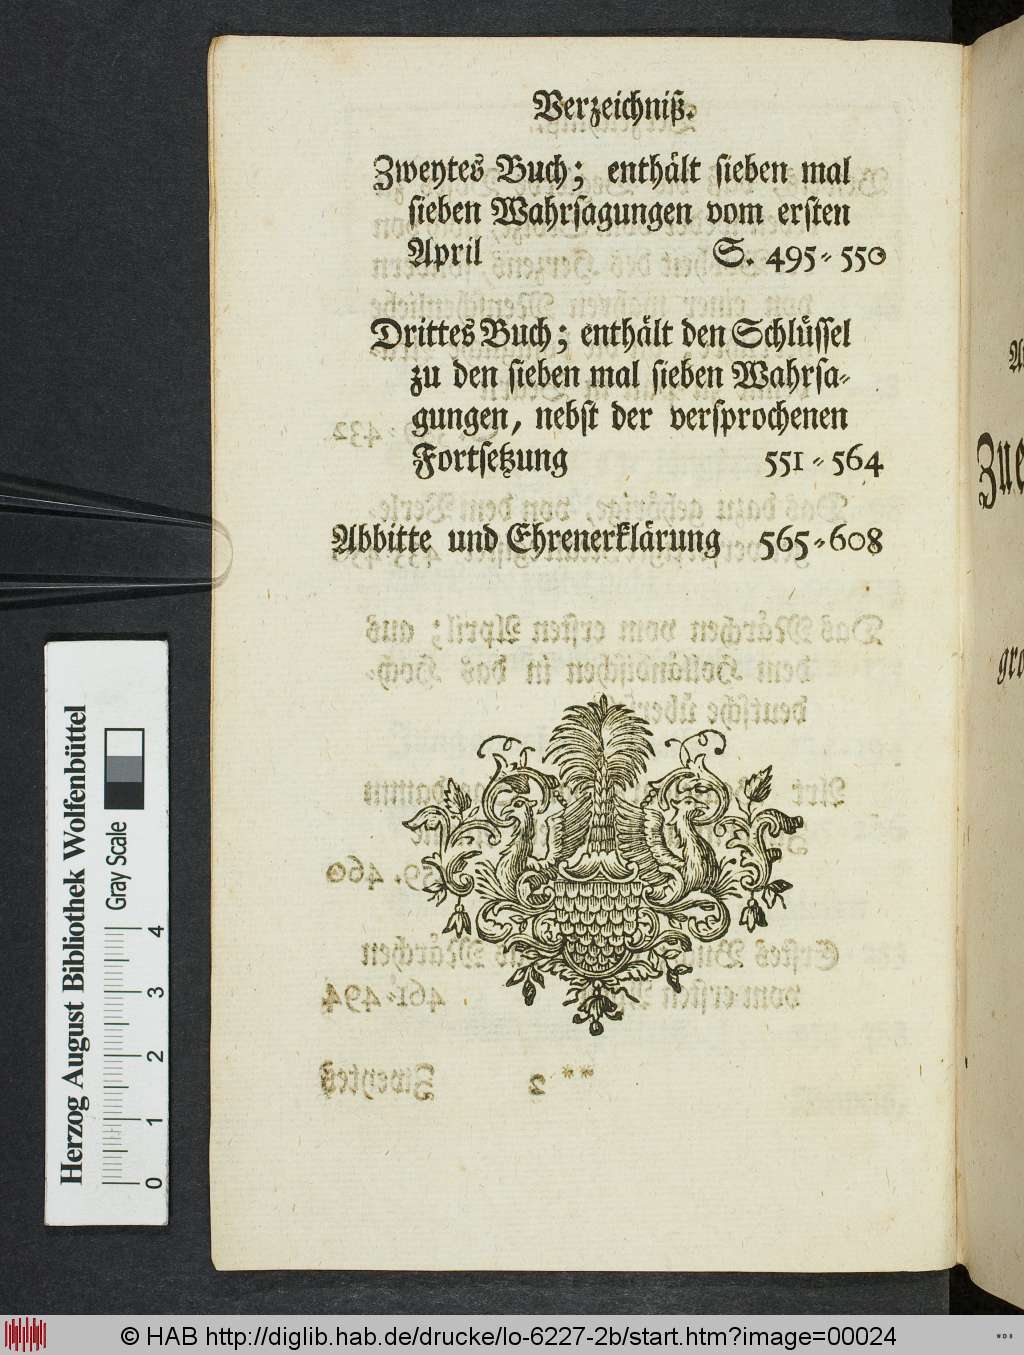 Verzeichniß.
Zweytes Buch; enthält sieben mal
sieben Wahrsagungen vom ersten
April S. 495-550
Drittes Buch; enthält den Schlüssel
zu den sieben mal sieben Wahrsa-
gungen, nebst der versprochenen
Fortsetzung 551-564
Abbitte und Ehrenerklärung 565-608
Zue
gra
Herzog August Bibliothek Wolfenbüttel
Gray Scale
0 1 2 3 4
© HAB http://diglib.hab.de/drucke/lo-6227-2b/start.htm?image=00024